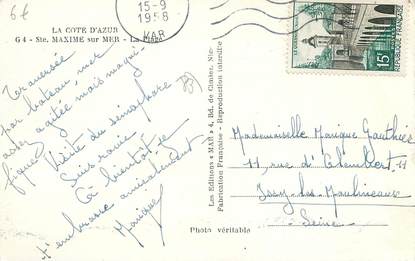 6€
LA COTE D'AZUR
G 4 - Ste. MAXIME sur MER - La Plage
Traversée
par bateau, mer
assez agitée mais magni-
fique.
Visite du sémaphore
Suis ravie
à bientôt je
t'embrasse amicalement
Monique
Les Editions « MAR », Bd. de Cimiez, Nice
Fabrication Française - Reproduction interdite
15-9
1958
VAR
15F
REPUBLIQUE FRANÇAISE
Mademoiselle Monique Gauthier
11, rue d'Alembert 11
Issy-les-Moulineaux
Seine
Photo véritable